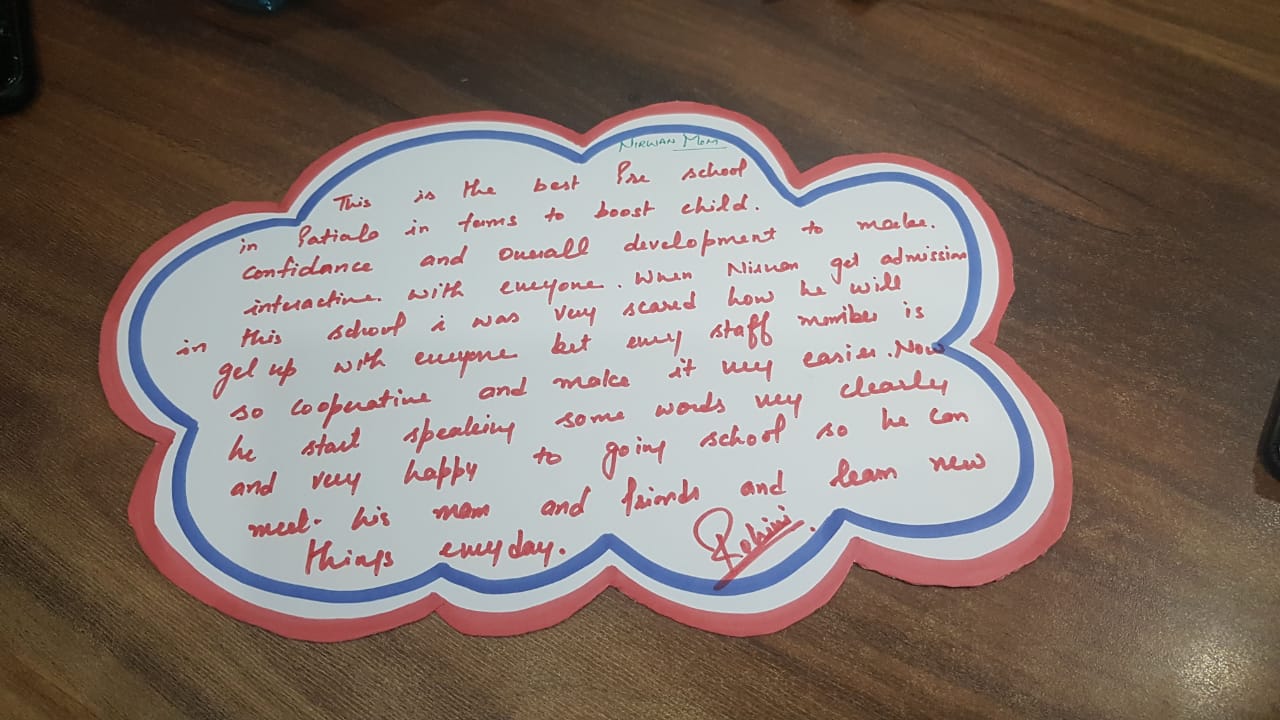 NIRWAN MOM
This is the best Pre school
in Patiala in terms to boost child.
confidance and overall development to make.
interactive. with everyone. When Nirwan get admission
in this school i was very scared how he will
get up with everyone but every staff member is
so cooperative and make it very easier. Now
he start speaking some words very clearly
and very happy to going school so he can
meet. his mam and friends and learn new
things everyday.
Rohini.